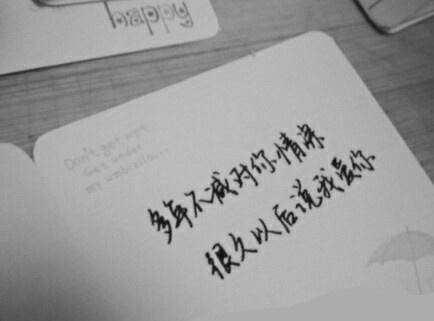 happy
Don't get wet
Get under
my umbrella...
多年不减对你情深
很久以后说我爱你